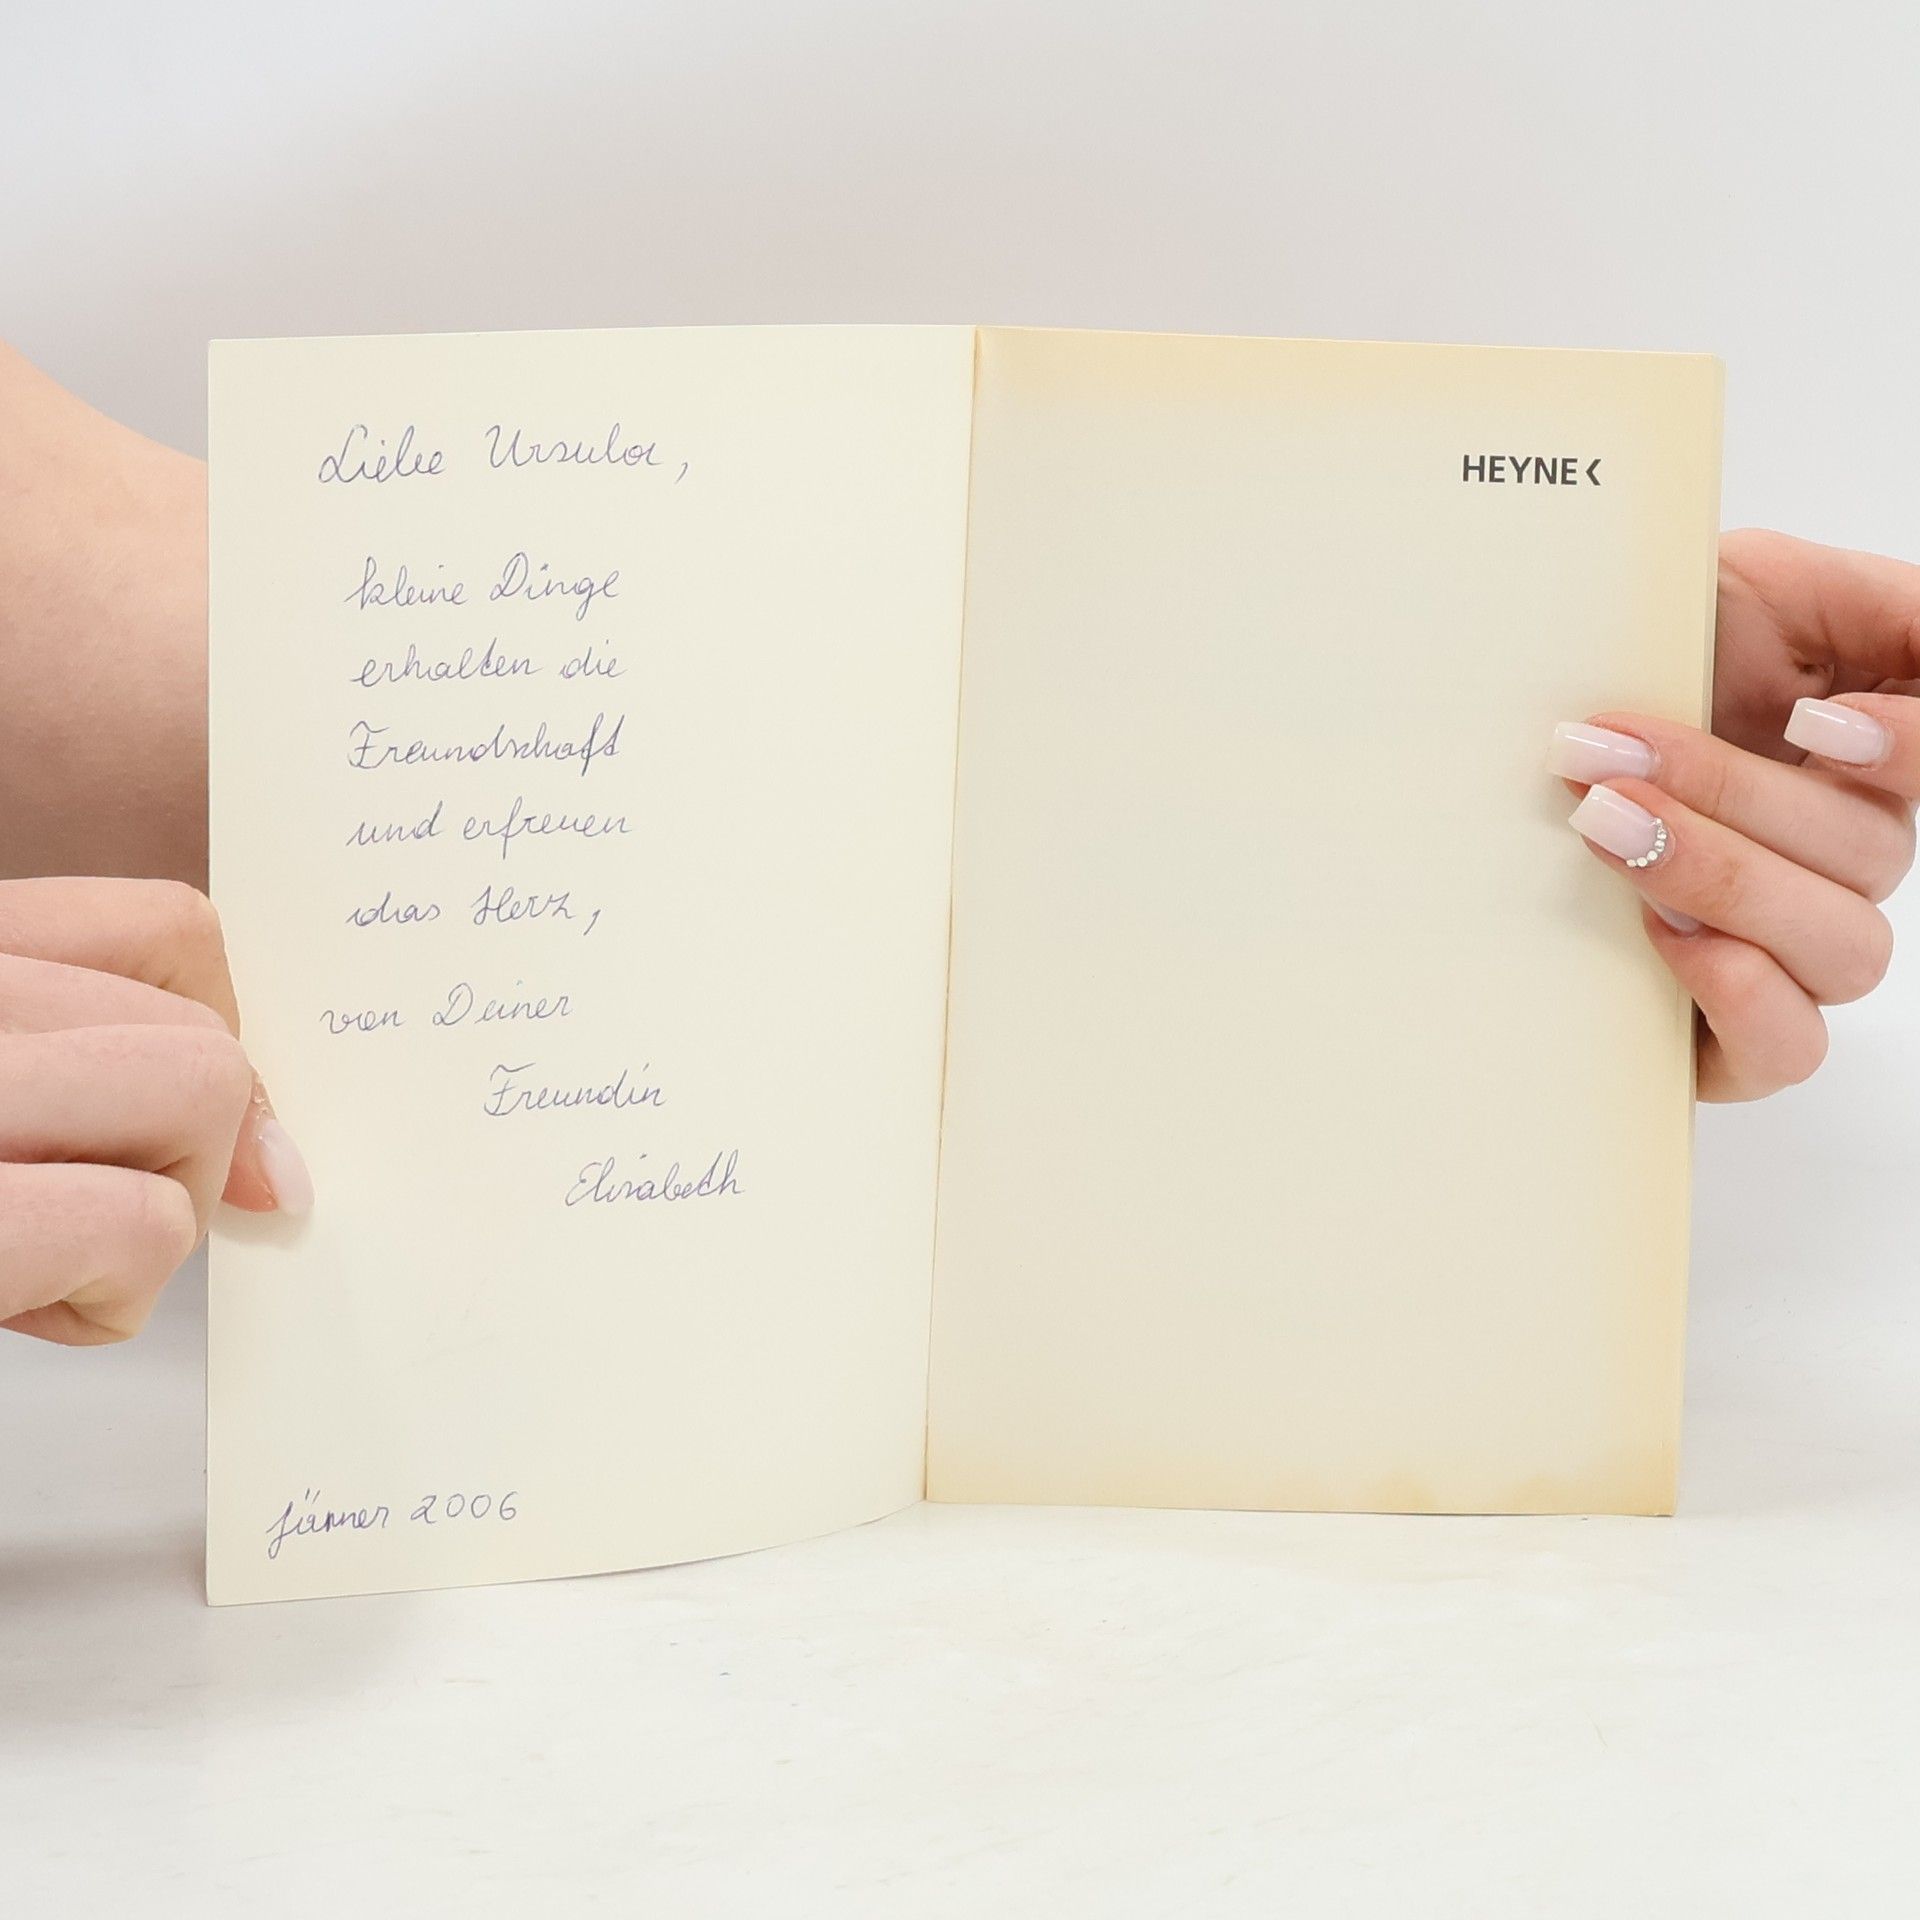 Liebe Ursula,
kleine Dinge
erhalten die
Freundschaft
und erfreuen
das Herz,
von Deiner
Freundin
Elisabeth
Jänner 2006
HEYNE<